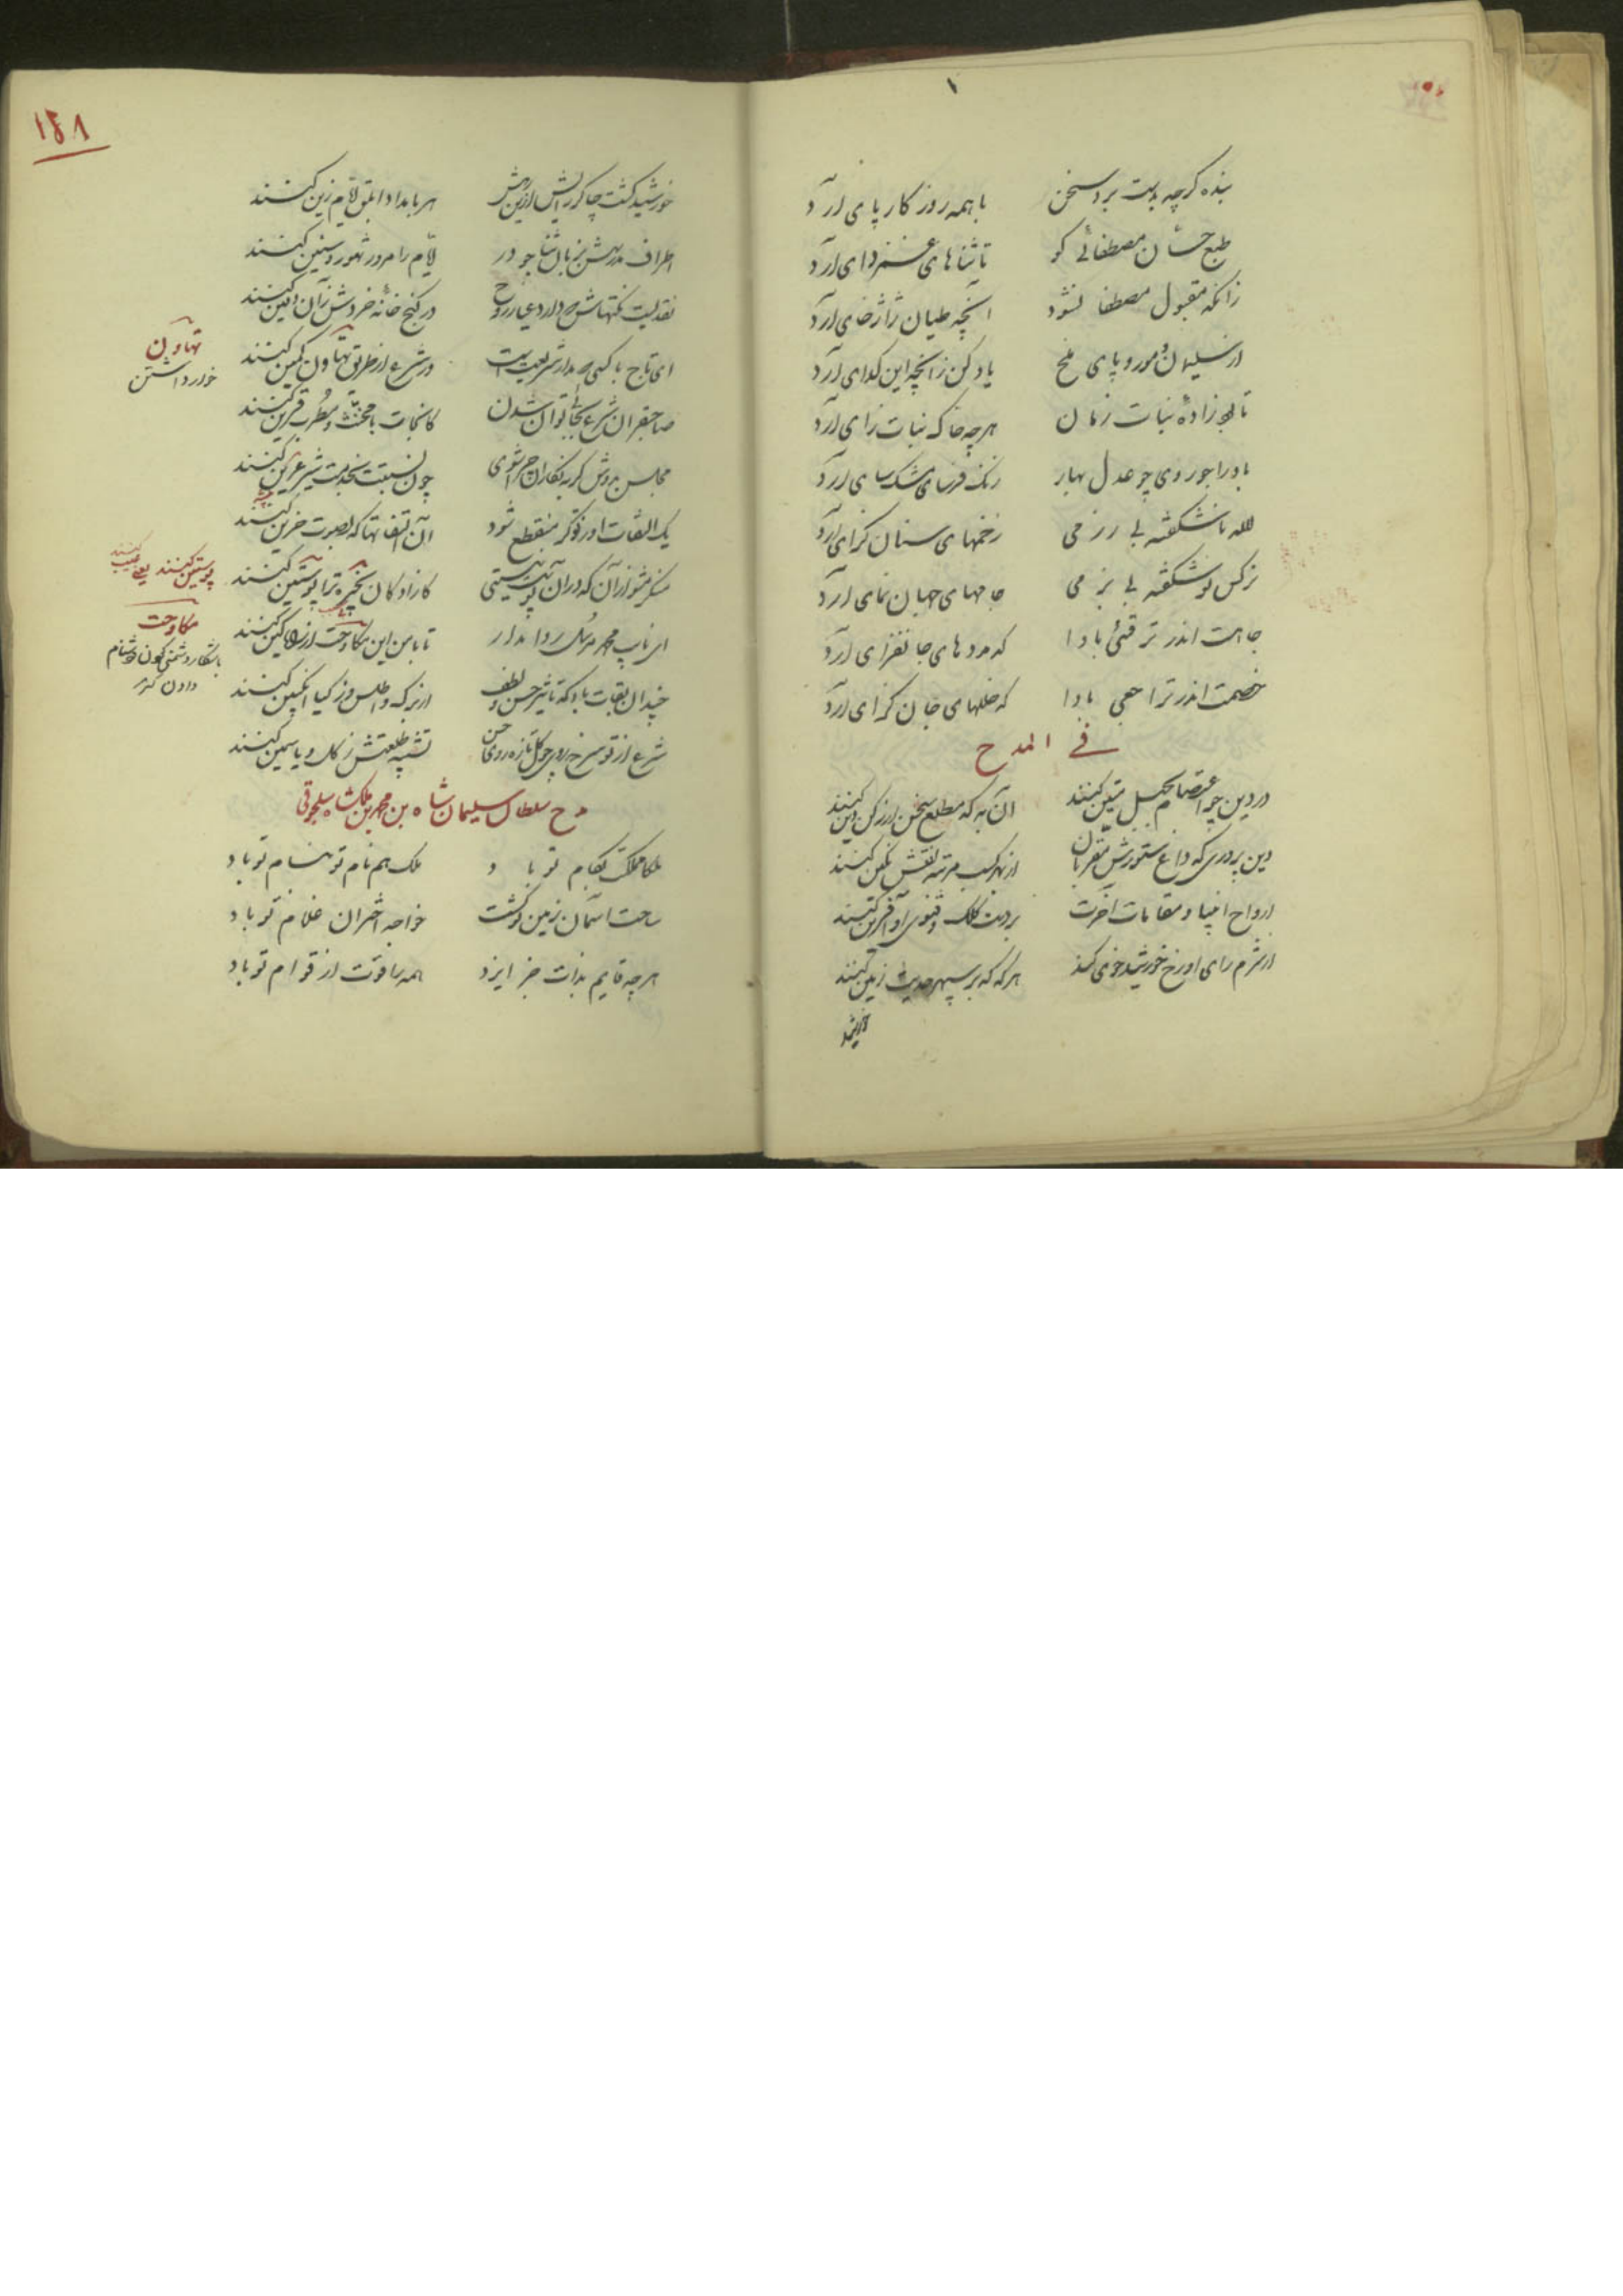 بنده گرچه بدست برد سخن    با همه روزگار پای آرد
طبع حسّان مصطفائی کو    تا ثناهای غمزدای آرد
زانکه مقبول مصطفا نشود    آنچه طیان ژاژخای آرد
از سلیمان و مور و پای ملخ    یاد کن زانچه این گدای آرد
تا بود زادهٔ نبات زمان    هر چه خاک نبات زای آرد
باد را جود وی چو عدل بهار    رنگ فرسای مشک سای آرد
لاله ناشکفته بی رزمی    زخمهای سنان گرای آرد
نرگس نوشکفته بی بزمی    جامهای جهان نمای آرد
جاهت اندر ترقئی بادا    که مددهای جانفزای آرد
خصمت اندر تراجعی بادا    که خللهای جان گزای آرد
فی المدح
در دین چو اعتصام بحبل متین کنند    آن به که مطلع سخن از رکن دین کنند
دین پروری که داغ ستورش مقربان    از بهر کسب مرتبه نقش نگین کنند
ارواح انبیا و مقامات آخرت    بر دست کلک و فتوی او آفرین کنند
از شرم رای او رخ خورشید خوی کند    هر گه که بر سپهر حدیث زمین کنند
خورشید
۱۴۸
خورشید گشت چاکر رایش ازین    هر بامداد ابلق ایام زین کنند
اطراف بزبان ثنا جو در    ایام را مرور شهور و سنین کنند
نقدیست نکتهاش    در کنج خانه خردش زان دفین کنند
ای تاج با کسی    در شرع از طریق تهاون کمین کنند
صاحبقران شرع بجائی توان شدن    کانجات با مخنث و مطرب قرین کنند
مجلس بدوش گربه    چون نسبتت بخدمت شیر عرین کنند
یک التفات او ز تو گر منقطع شود    آن التفاتها که بصوت حزین کنند
منکر مشو از آن که در آن پوستیتی    کازادگان بخیره ترا پوستین کنند
ای نایب محمد مرسل روا مدار    تا با من این مکاوحت از راه کین کنند
چندان بقات باد که تاثیر حسن و لطف    از برگ و اطلس و ز گیا انگبین کنند
شرع از تو سرخ روی چو گل تازه روی    تشبیه طلعتش ز گل و یاسمین کنند
تهاون
خوار داشتن
پوستین کنند یعنی عیب کنند
مکاوحت
دشنام
دادن
مدح سلطان سلیمان شاه بن محمد بن ملکشاه سلجوقی
ملکا مملکت بکام تو باد    ملک هم نام تو بنام تو باد
ساحت آسمان زمین تو گشت    خواجه اختران غلام تو باد
هر چه قایم بذات جز ایزد    همه را قوت از قوام تو باد